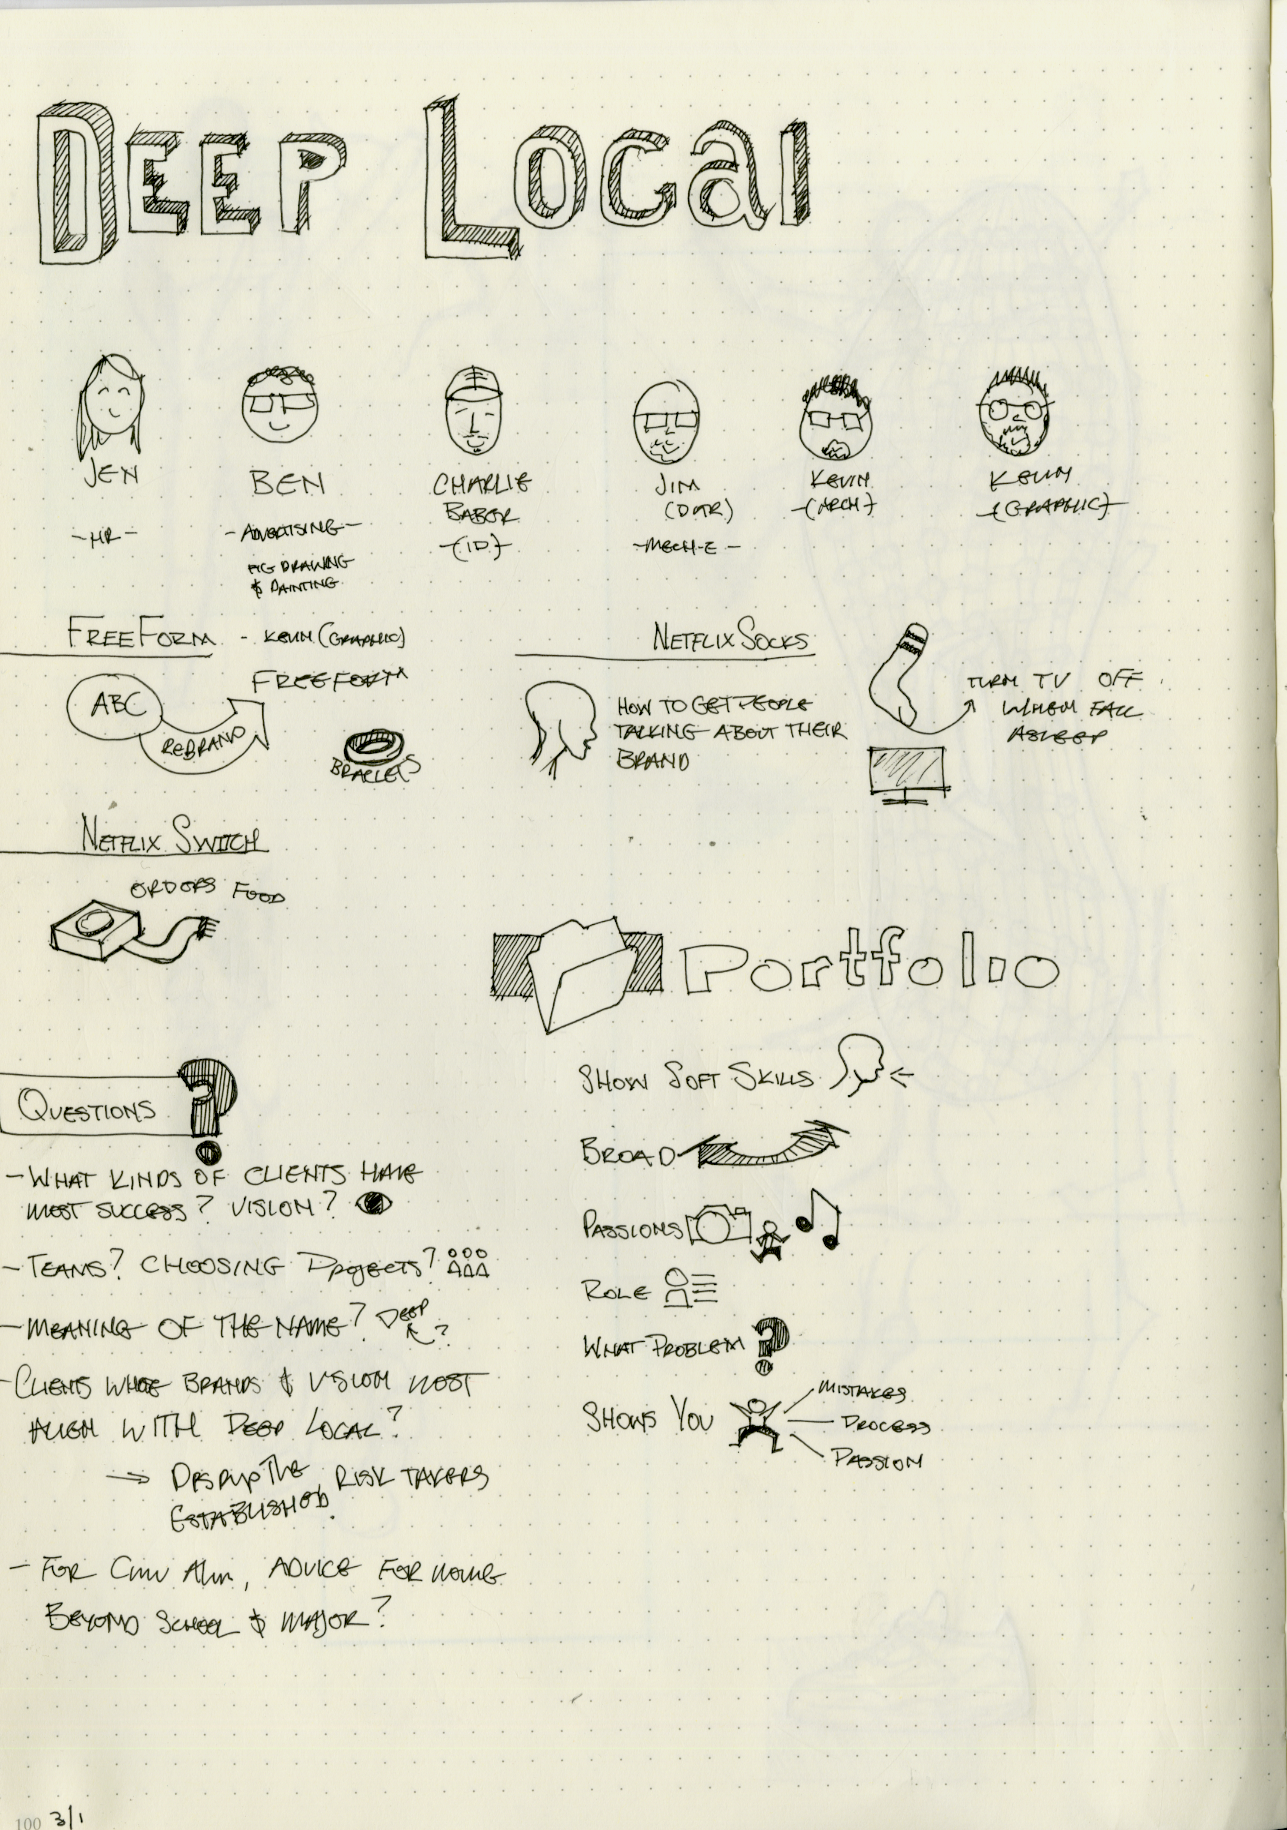 DEEP LOCAL
JEN
-HR-
BEN
-ADVERTISING-
FIG DRAWING
& PAINTING
CHARLIE
BABOR
-(ID)-
JIM
-MECH-E-
KEVIN
-(ARCH)-
KEVIN
-(GRAPHIC)-
FREEFORM - KEVIN (GRAPHIC)
ABC
REBRAND
FREEFORM
BRACLETS
NETFLIX SOCKS
HOW TO GET PEOPLE
TALKING ABOUT THEIR
BRAND
TURN TV OFF
WHEN FALL
ASLEEP
NETFLIX SWITCH
ORDERS FOOD
QUESTIONS ?
- WHAT KINDS OF CLIENTS HAVE
MOST SUCCESS? VISION?
- TEAMS? CHOOSING Projects?
- MEANING OF THE NAME? DEEP
?
- CLIENTS WHOSE BRANDS & VISION MOST
ALIGN WITH DEEP LOCAL?
→ DISRUPT THE
ESTABLISHED. RISK TAKERS
- FOR CMU Alum, ADVICE FOR MOVING
BEYOND SCHOOL & MAJOR?
Portfolio
SHOW SOFT SKILLS
BROAD
PASSIONS
ROLE
WHAT PROBLEM ?
SHOWS YOU
MISTAKES
PROCESS
PASSION
100 3/1